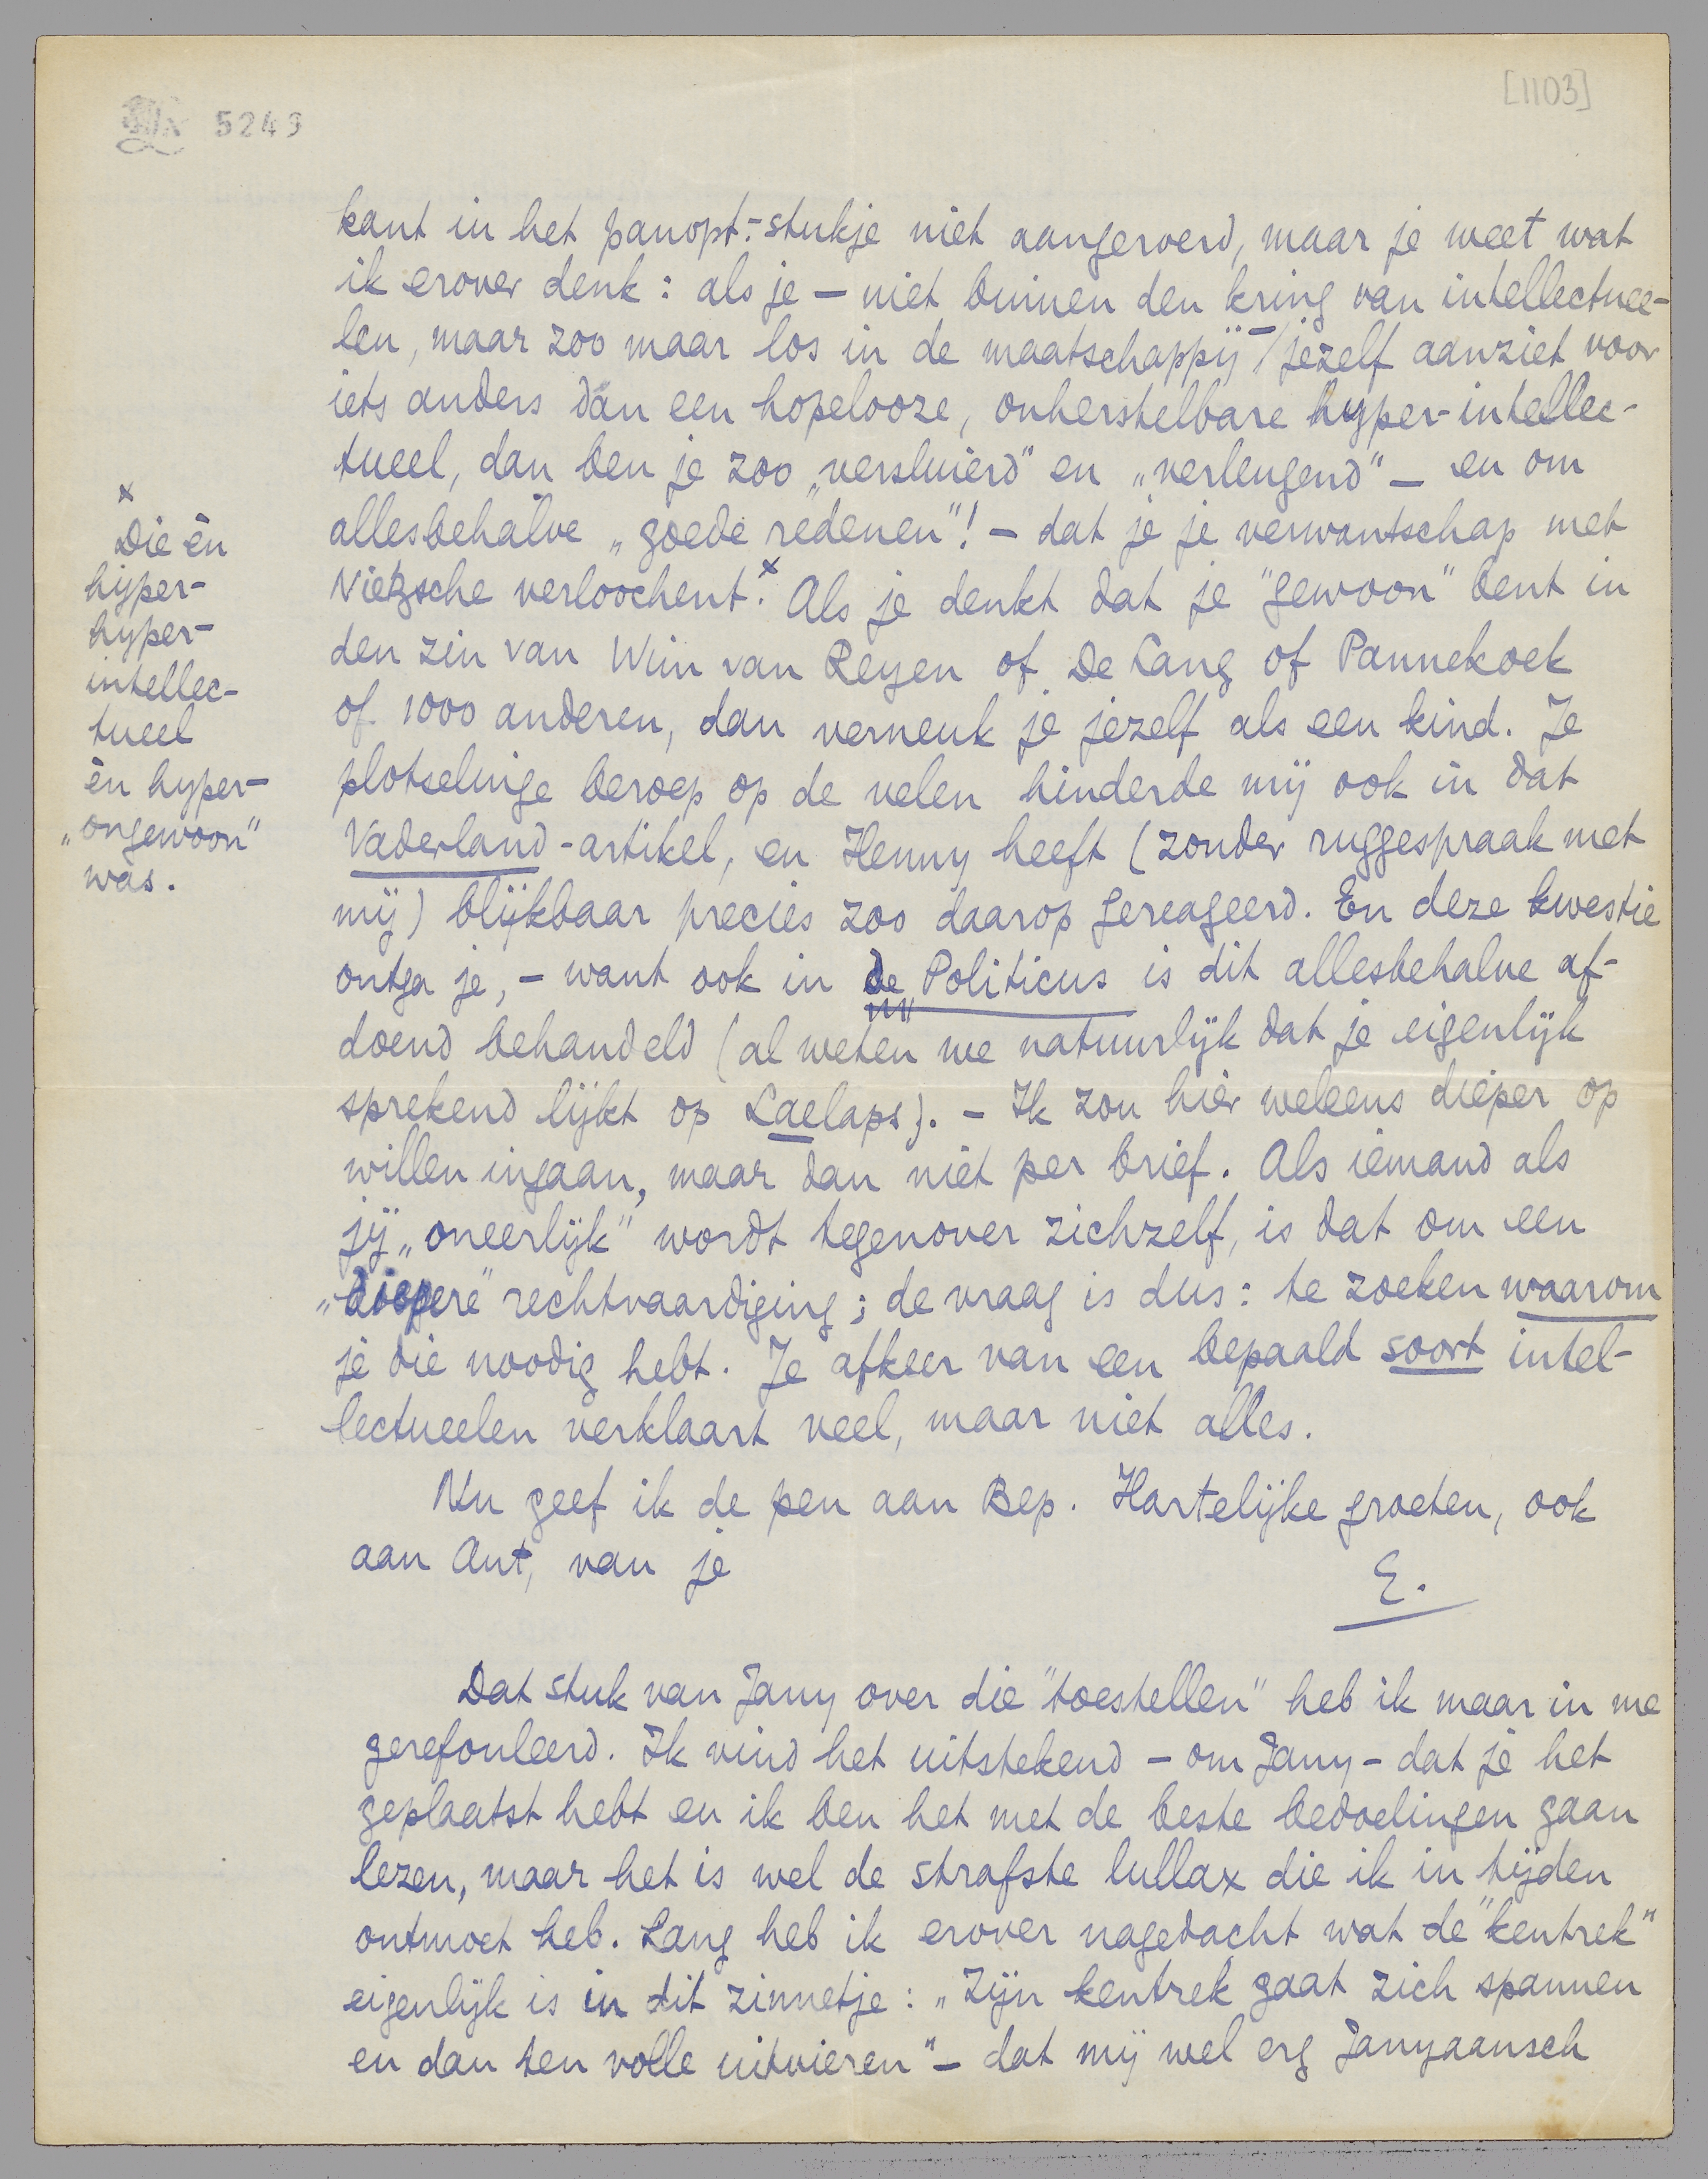 [1103]
5249
kant in het panopt.-stukje niet aangeroerd, maar je weet wat
ik erover denk: als je — niet binnen den kring van intellectuee-
len, maar zoo maar los in de maatschappij — jezelf aanziet voor
iets anders dan een hopelooze, onherstelbare hyper-intellec-
tueel, dan ben je zoo „versluierd" en „verleugend" — en om
allesbehalve „goede redenen"! — dat je je verwantschap met
Nietzsche verloochent.x Als je denkt dat je "gewoon" bent in
den zin van Wim van Reyen of De Lang of Pannekoek
of 1000 anderen, dan verneuk je jezelf als een kind. Je
plotselinge beroep op de velen hinderde mij ook in dat
Vaderland-artikel, en Henny heeft (zonder ruggespraak met
mij) blijkbaar precies zoo daarop gereageerd. En deze kwestie
ontga je, — want ook in de Politicus is dit allesbehalve af-
doend behandeld (al weten we natuurlijk dat je eigenlijk
sprekend lijkt op Laelaps). — Ik zou hier weleens dieper op
willen ingaan, maar dan niet per brief. Als iemand als
jij „oneerlijk" wordt tegenover zichzelf, is dat om een
„diepere" rechtvaardiging; de vraag is dus: te zoeken waarom
je die noodig hebt. Je afkeer van een bepaald soort intel-
lectueelen verklaart veel, maar niet alles.
Nu geef ik de pen aan Bep. Hartelijke groeten, ook
aan Ant, van je
E.
x
Die èn
hyper-
hyper-
intellec-
tueel
èn hyper-
„ongewoon"
was.
Dat stuk van Jany over die "toestellen" heb ik maar in me
gerefouleerd. Ik vind het uitstekend — om Jany — dat je het
geplaatst hebt en ik ben het met de beste bedoelingen gaan
lezen, maar het is wel de strafste lullax die ik in tijden
ontmoet heb. Lang heb ik erover nagedacht wat de "kentrek"
eigenlijk is in dit zinnetje: „Zijn kentrek gaat zich spannen
en dan ten volle uitvieren" — dat mij wel erg Janyaansch